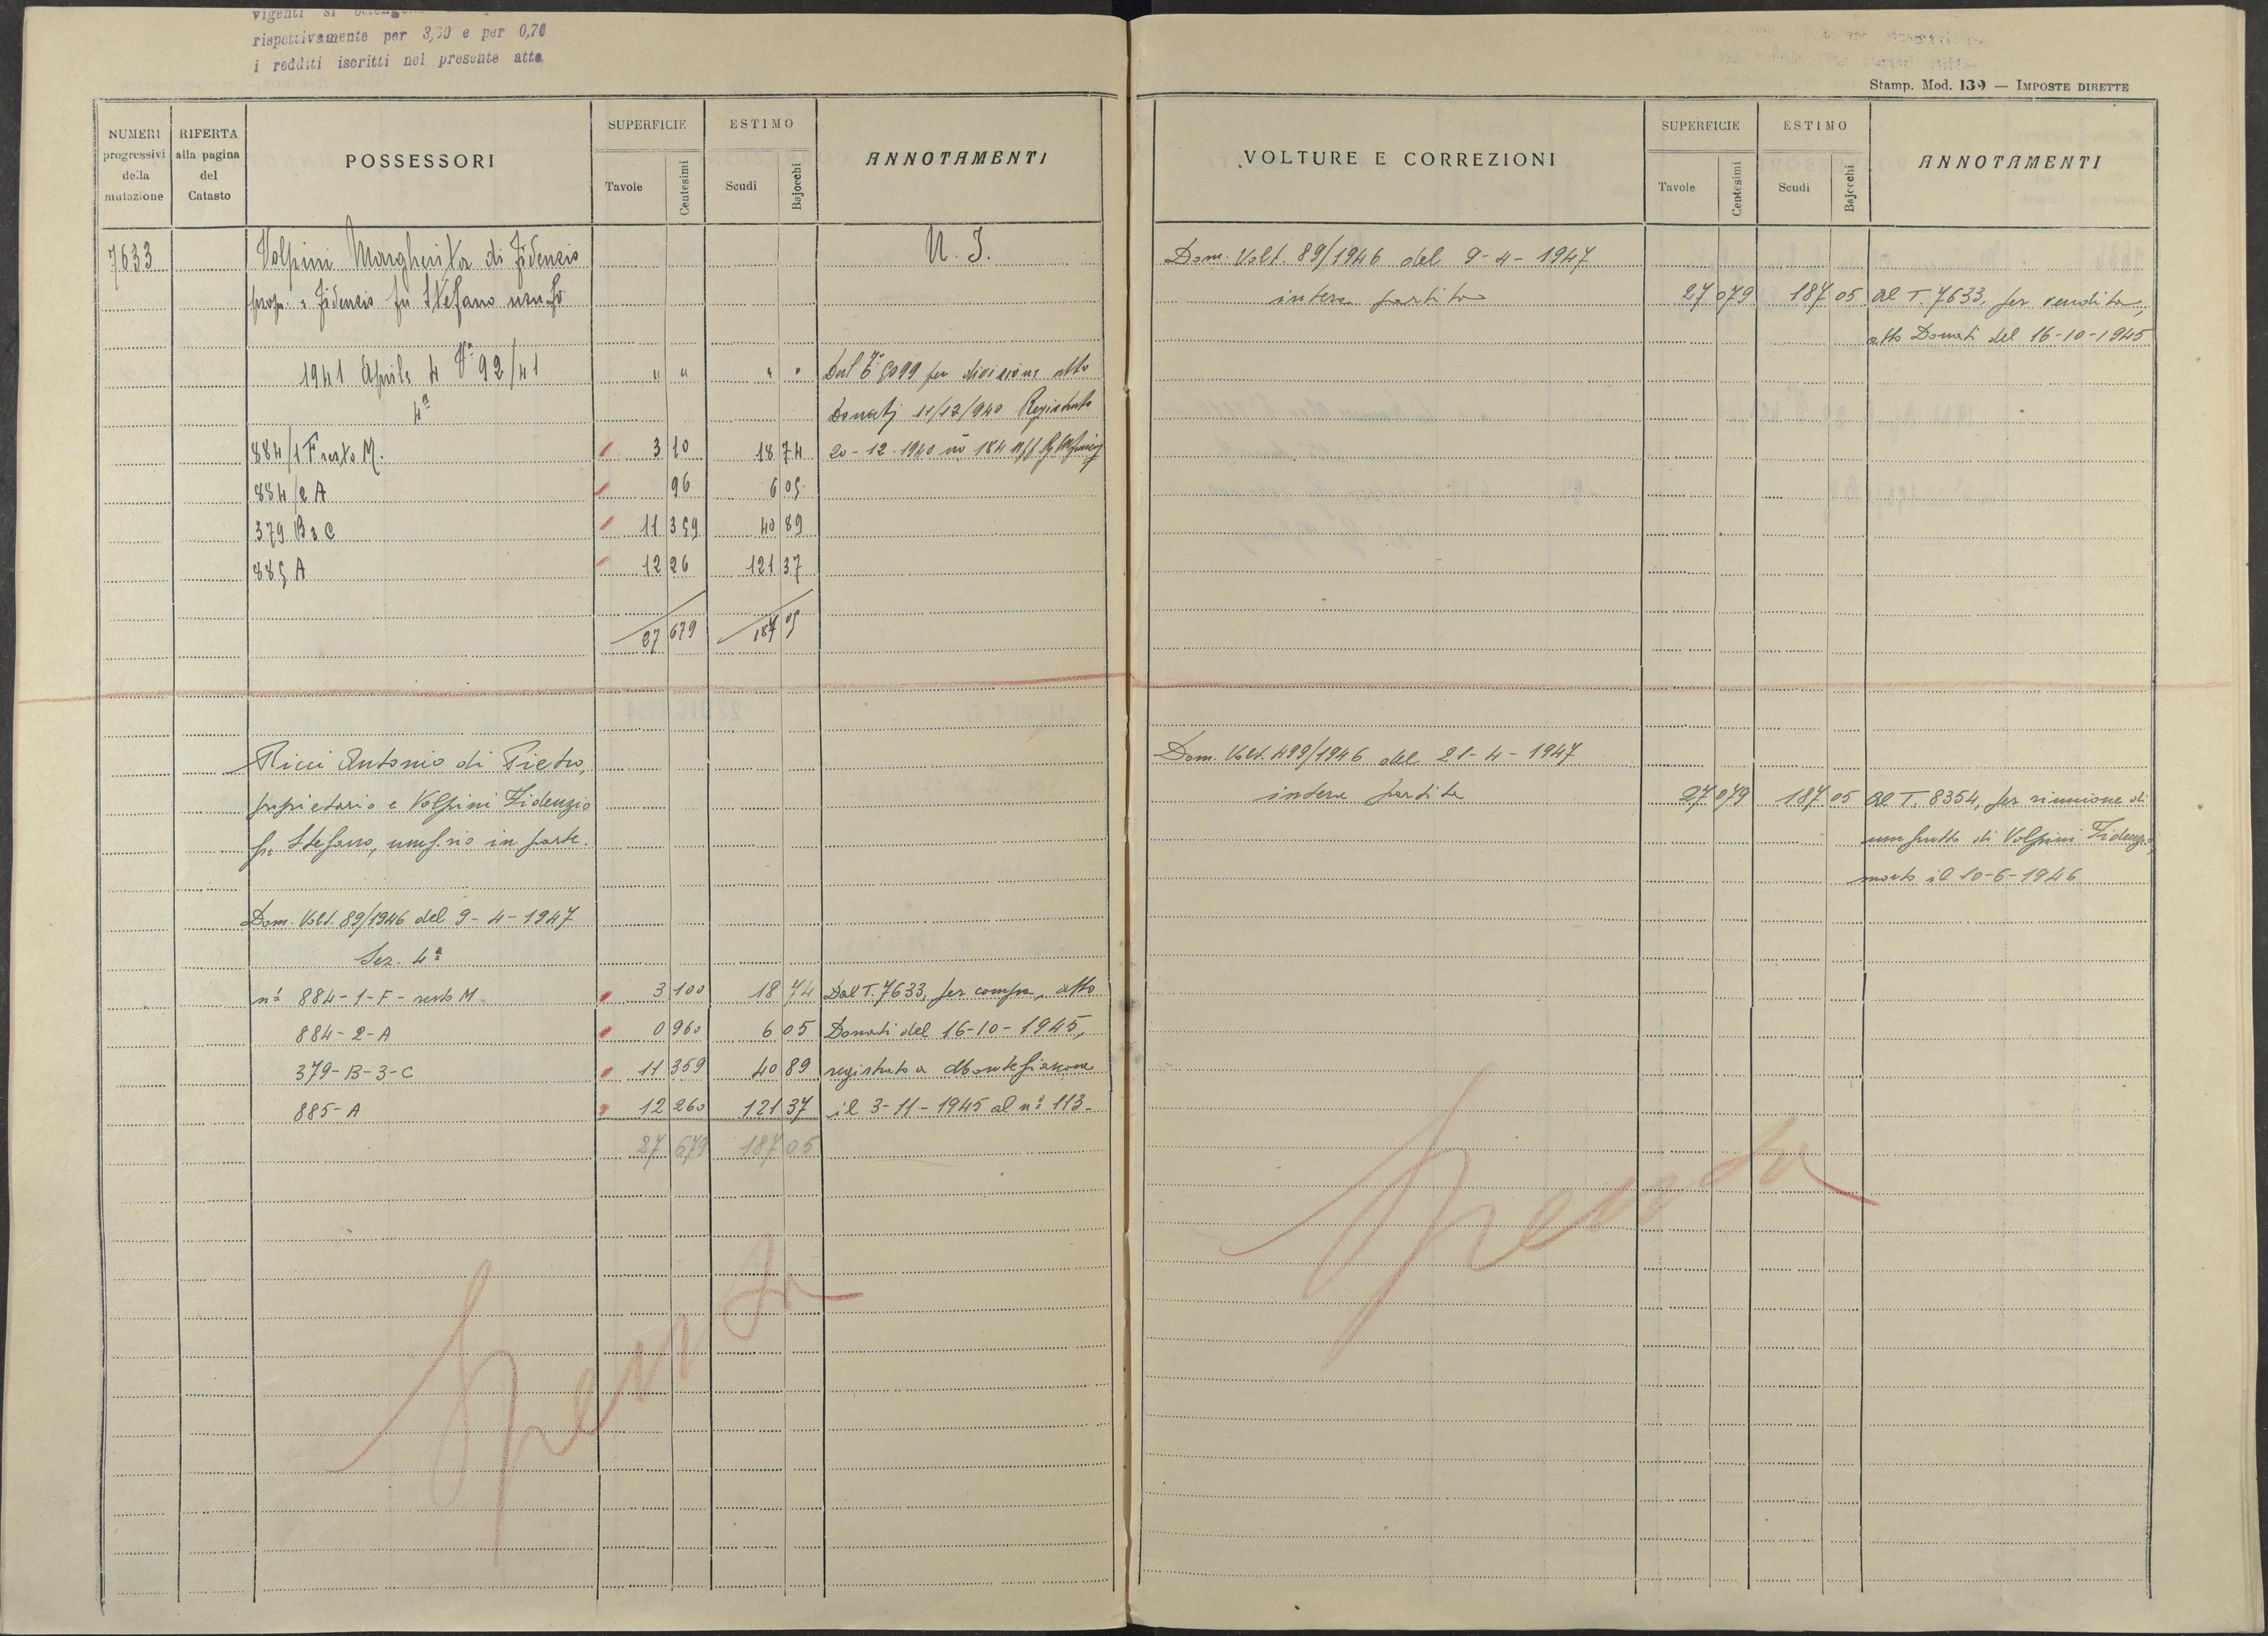 vigenti si
rispettivamente per 3,30 e per 0,70
i redditi iscritti nel presente atto
NUMERI progressivi della mutazione
RIFERTA alla pagina del Catasto
POSSESSORI
SUPERFICIE
Tavole
Centesimi
ESTIMO
Scudi
Bajocchi
ANNOTAMENTI
7633 Volpini Margherita di Fidenzio N. I.
prop. e Fidenzio fu Stefano usuf.º
1941 Aprile 4 Vª 92/41 " " " " Dal T. 6099 per divisione atto
4ª Donati 11/12/940 Registrato
884/1 F resto M. 3 10 18 74 20-12-1940 nº 184
884/2 A 96 6 05
379 B 3 C 11 359 40 89
885 A 12 26 121 37
27 679 187 05
Ricci Antonio di Pietro,
proprietario e Volpini Fidenzio
fu Stefano, usuf.rio in parte.
Dom. Volt. 89/1946 del 9-4-1947
Sez. 4ª
nº 884-1-F-resto M 3 100 18 74 Dal T. 7633, per compra, atto
884-2-A 0 960 6 05 Donati del 16-10-1945,
379-B-3-C 11 359 40 89 registrato a Montegiorgio
885-A 12 260 121 37 il 3-11-1945 al nº 113-
27 679 187 05
Spenta
Stamp. Mod. 139 — IMPOSTE DIRETTE
VOLTURE E CORREZIONI
SUPERFICIE
Tavole
Centesimi
ESTIMO
Scudi
Bajocchi
ANNOTAMENTI
Dom. Volt. 89/1946 del 9-4-1947
intera partita 27 679 187 05 Al T. 7633, per vendita,
atto Donati del 16-10-1945
Dom. Volt. 499/1946 del 21-4-1947
intera partita 27 679 187 05 Al T. 8354, per riunione di
usufrutto di Volpini Fidenzio,
morto il 10-6-1946
Spenta